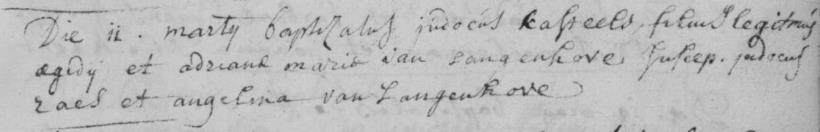 Die ii. martÿ baptizatus judocus Kasteels filius legitimus
ægidÿ et adrianæ mariæ van Langenhove suscep. judocus
Raes et angelina van Langenhove